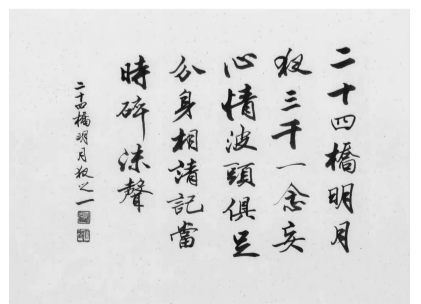 二十四橋明月
夜三千一念妄
心情波頭俱足
分身相請記當
時碎沫聲
二十四橋明月夜之一